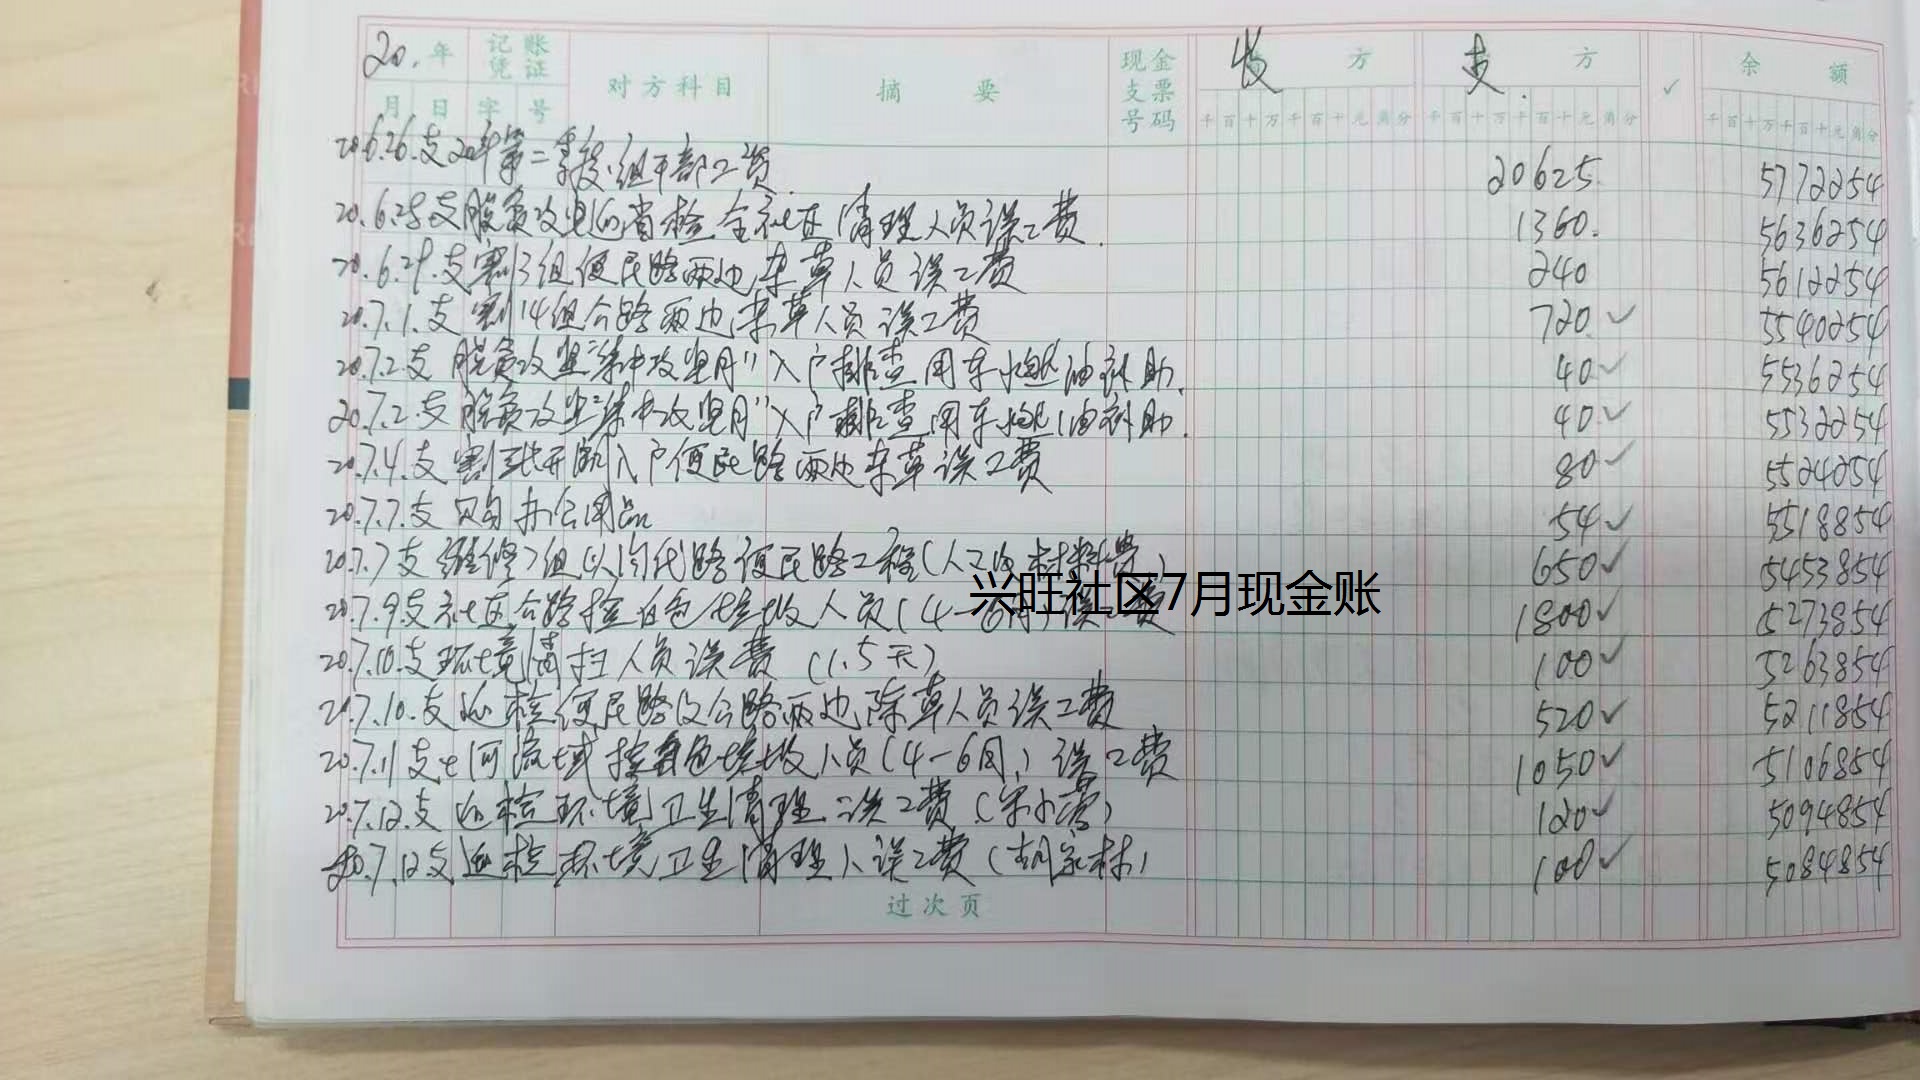 20. 年 记账凭证 对方科目 摘 要 现金支票号码 收 方 支 方 ✓ 余 额
月 日 字 号 千百十万千百十元角分 千百十万千百十元角分 千百十万千百十元角分
20.6.26.支20年第二季度组干部工资. 20625. 5772254
20.6.28支脱贫攻坚 检全社区清理人员误工费. 1360. 5636254
20.6.29.支割3组便民路两边杂草人员误工费 240 5612254
20.7.1.支割14组公路两边杂草人员误工费 720. ✓ 5540254
20.7.2支脱贫攻坚"集中攻坚月"入户排查用车燃油补助. 40 ✓ 5536254
20.7.2.支脱贫攻坚"集中攻坚月"入户排查用车燃油补助. 40. ✓ 5532254
20.7.4.支割 入户便民路两边杂草误工费 80 ✓ 5524254
20.7.7.支购办公用品 54 ✓ 5518854
20.7.7支维修7组 路便民路工程(人工及材料费) 650 ✓ 5453854
20.7.9支社区公路捡白色垃圾人员(4-6月)误工费 1800 ✓ 5273854
兴旺社区7月现金账
20.7.10.支环境清扫人员误费(1.5天) 100 ✓ 5263854
20.7.10.支巡检便民路及公路两边除草人员误工费 520 ✓ 5211854
20.7.11支七河流域捡白色垃圾人员(4-6月)误工费 1050 ✓ 5106854
20.7.12.支巡检环境卫生清理误工费(宋小蓉) 120 ✓ 5094854
20.7.12支巡检环境卫生清理人误工费(胡家林) 100 ✓ 5084854
过次页